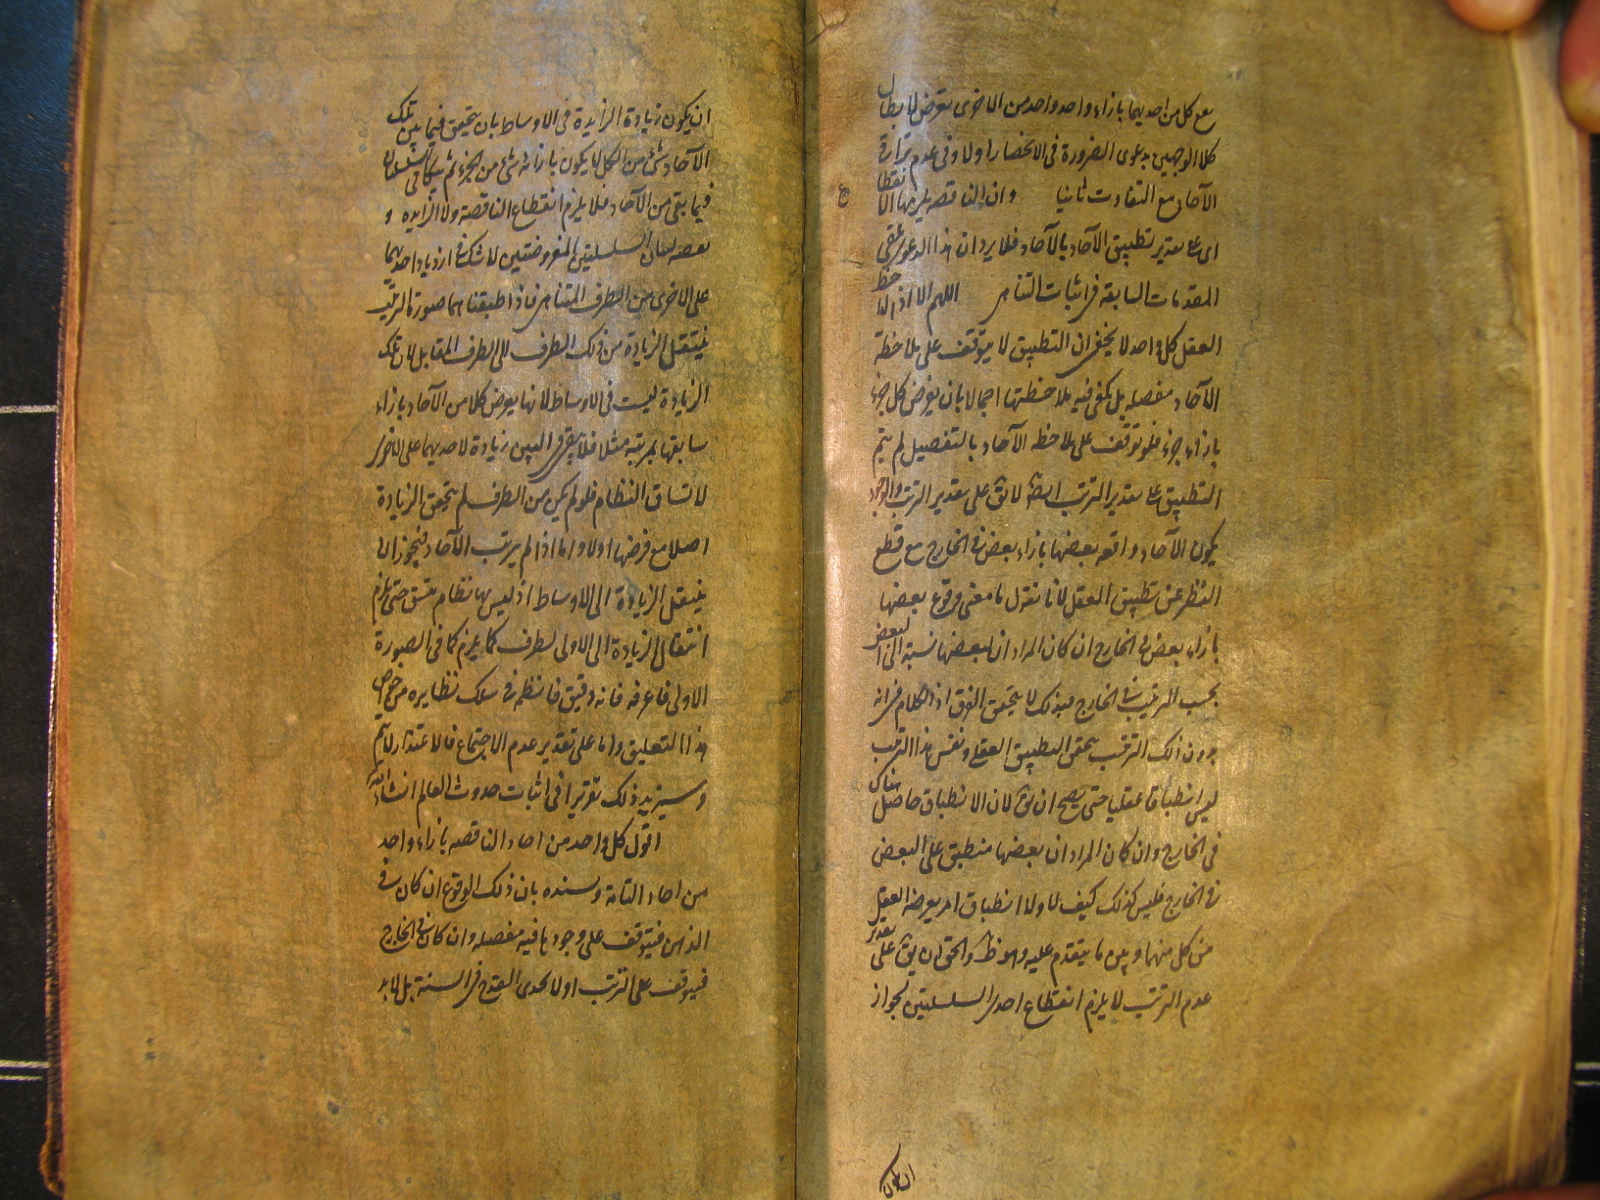 مع كل من احديهما بازاء واحد واحد من الاخرى تعرض لابطال
كلا الوجهين بدعوى الضرورة فى الانحصار اولا وفى عدم
الآحاد مع التفاوت ثانيا وان الناقصه يلزمها الانقطاع
اى على تقدير تطبيق الآحاد بالآحاد فلا يرد ان هذا الدعوى
المقدمات السابقة فى اثبات التناهى اللهم الا اذا لاحظ
العقل كل واحد لا يخفى ان التطبيق لا يتوقف على ملاحظة
الآحاد مفصله بل يكفى فيه ملاحظتها اجمالا بان يعرض كل جزء
بازاء جزء فلو توقف على ملاحظة الآحاد بالتفصيل لم يتم
التطبيق على تقدير الترتب ايضا لا يق على تقدير الترتب والوجود
يكون الآحاد واقعه بعضها بازاء بعض فى الخارج مع قطع
النظر عن تطبيق العقل لانا نقول ما معنى وقوع بعضها
بازاء بعض فى الخارج ان كان المراد ان لبعضها نسبة الى البعض
بحسب الترتيب فى الخارج فبذلك لا يتحقق الفرق اذ الكلام فى انه
بدون ذلك الترتب يتحقق التطبيق العقلى ونفس هذا الترتب
ليس انطباقا عقليا حتى يصح ان يق لان الانطباق حاصل هناك
فى الخارج وان كان المراد ان بعضها منطبق على البعض
فى الخارج فليس كذلك كيف لا ولا انطباق امر يعرضه العقل
من كل منهما وبين ما يتقدم عليه وهو ظ والحق ان يق على تقدير
عدم الترتب لا يلزم انقطاع احدى السلسلتين لجواز
ان يكون
ان يكون زيادة الزايدة فى الاوساط بان يتحقق فيما بين تلك
الآحاد شئ من الكل لا يكون بازائه شئ من الجزء ثم
فيما بقى من الآحاد فلا يلزم انقطاع الناقصة ولا الزايده و
السلسلتين المفروضتين لا شك فى ازدياد احديهما
على الاخرى من الطرف المتناهى فاذا طبقناهما صورة الترتيب
ينتقل الزيادة من ذلك الطرف الى الطرف المقابل لان تلك
الزيادة ليست فى الاوساط لانها يعرض كلا من الآحاد بازاء
سابقها بمرتبة مثلا فلا يبقى فى البين زيادة لاحديهما على الاخرى
لاتساق النظام فلو لم يكن من الطرف لم يتحقق الزيادة
اصلا مع فرضها اولا واما اذا لم يترتب الآحاد فيجوز ان
ينتقل الزيادة الى الاوساط اذ ليس لها نظام متسق حتى يلزم
انتقال الزيادة الى الاولى لطرف كما يلزم كما فى الصورة
الاولى فاعرفه فانه دقيق فانظم فى سلك نظايره من خواص
هذا التعليق واما على تقدير عدم الاجتماع فالاعتذار لا يتم
وسيزيد ذلك تقريرا فى اثبات حدوث العالم انشاء الله
اقول كل واحد من احاد الناقصه بازاء واحد
من احاد التامة وسنده بان ذلك الوقوع ان كان فى
الذهن فيتوقف على وجودها فيه مفصله وان كان فى الخارج
فيتوقف على الترتب اولا يجدى القدح فى السنة بل لا بد